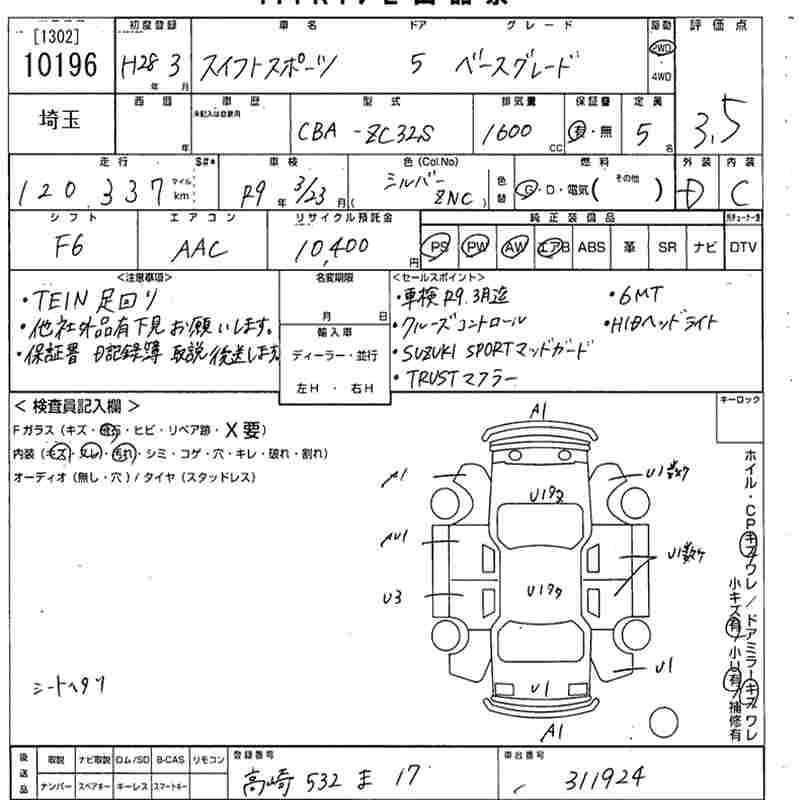 [1302]
10196
初度登録
H28 3
年 月
車名
スイフトスポーツ
ドア
5
グレード
ベースグレード
駆動
2WD
4WD
評価点
3.5
埼玉
西暦
年
車歴
未記入は自家用
型式
CBA - ZC32S
排気量
1600
CC
保証書
有・無
定員
5
名
走行
120,337
マイル
km
S#*
車検
R9 年 3/23 月
色 (Col.No)
シルバー
( ZNC )
色替
燃料
G・D・電気 ( その他 )
外装
D
内装
C
シフト
F6
エアコン
AAC
リサイクル預託金
10,400
円
純正装備品
PS PW AW エアB ABS 革 SR ナビ DTV
<注意事項>
・TEIN 足回り
・他社外品有 下見お願いします。
・保証書 記録簿 取説 後送します
名変期限
月 日
輸入車
ディーラー・並行
左H ・ 右H
<セールスポイント>
・車検R9.3月迄
・クルーズコントロール
・SUZUKI SPORTマッドガード
・TRUSTマフラー
・6MT
・HIDヘッドライト
< 検査員記入欄 >
Fガラス (キズ・飛石・ヒビ・リペア跡・X要)
内装 (キズ・スレ・汚れ・シミ・コゲ・穴・キレ・破れ・割れ)
オーディオ (無し・穴) / タイヤ (スタッドレス)
キーロック
A1
A1
U1数ケ
AU1
U1数ケ
U3
U1
U1
A1
シートヘタリ
ホイル・CPキズ/ワレ/ドアミラーキズ ワレ
小キズ有/小U有/補修有
後送品
取説 ナビ取説 ロム/SD B-CAS リモコン
ナンバー スペアキー キーレス スマートキー
登録番号
高崎 532 ま 17
車台番号
311924